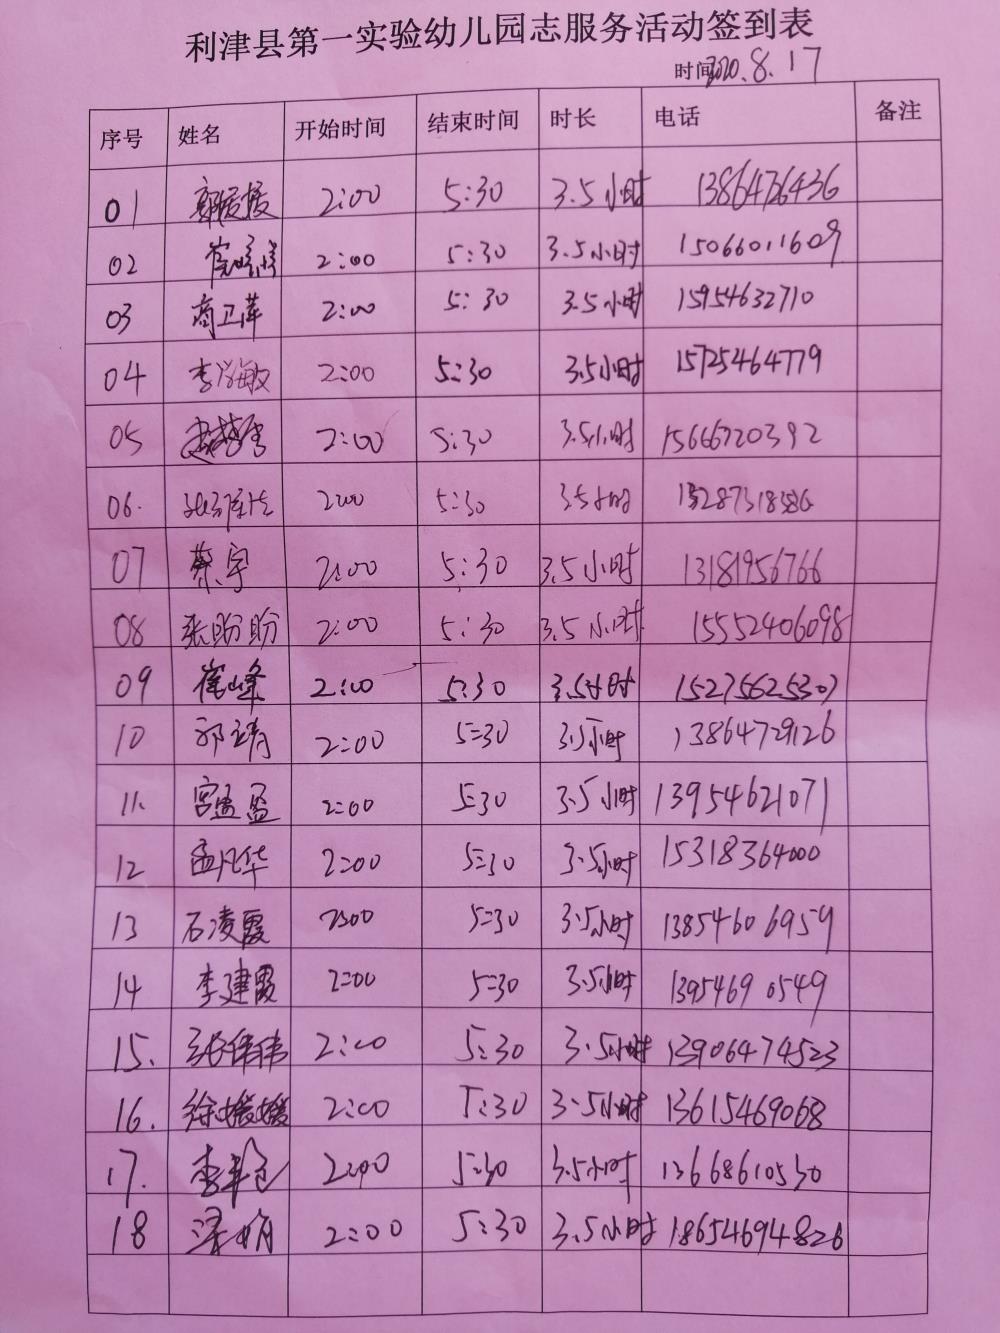 利津县第一实验幼儿园志服务活动签到表
时间2020.8.17
序号 姓名 开始时间 结束时间 时长 电话 备注
01 2:00 5:30 3.5小时 13864726436
02 2:00 5:30 3.5小时 15066011609
03 商卫萍 2:00 5:30 3.5小时 15954632710
04 李海敏 2:00 5:30 3.5小时 15725464779
05 2:00 5:30 3.5小时 15666720392
06. 2:00 5:30 3.5小时
07 蔡宇 2:00 5:30 3.5小时 13181956766
08 张盼盼 2:00 5:30 3.5小时 15552406098
09 崔峰 2:00 5:30 3.5小时 15275625307
10 郭靖 2:00 5:30 3.5小时 13864729126
11. 宫盈盈 2:00 5:30 3.5小时 13954621071
12 孟凡华 2:00 5:30 3.5小时 15318364000
13 石凌霞 2:00 5:30 3.5小时 13854606959
14 李建霞 2:00 5:30 3.5小时 13954690549
15. 张伟伟 2:00 5:30 3.5小时 13906474523
16. 徐媛媛 2:00 5:30 3.5小时 13615469068
17. 2:00 5:30 3.5小时 13668610530
18 梁娟 2:00 5:30 3.5小时 18654694826